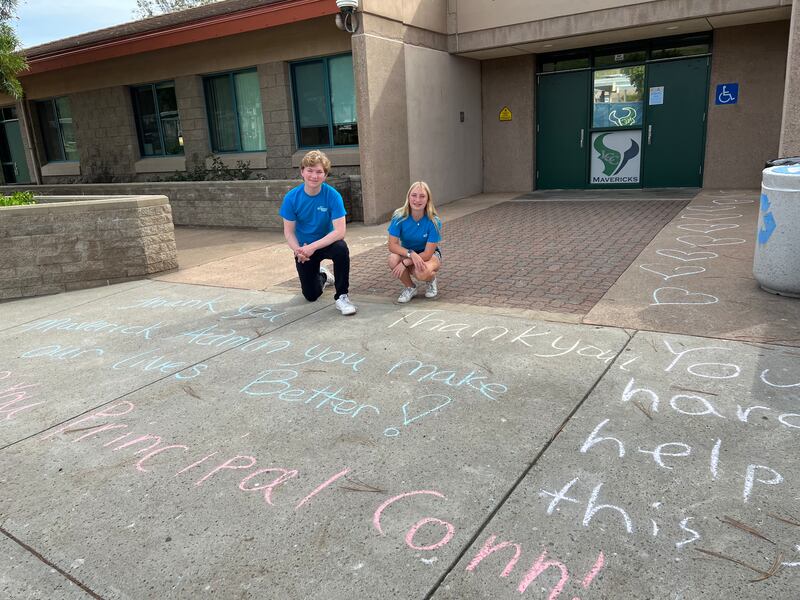 MAVERICKS
Thank you
Maverick Admin you make
our lives Better!
Thank you
You
hard
help
this
Principal Conn!